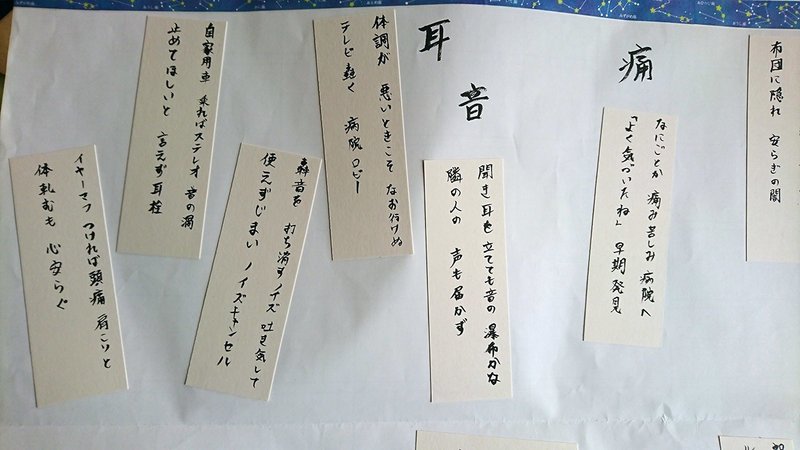 布団に隠れ 安らぎの闇
痛
なにごとか 痛み苦しみ 病院へ
「よく気づいたね」 早期発見
耳
音
聞き耳を 立てても音の 瀑布かな
隣の人の 声も届かず
体調が 悪いときこそ なお行けぬ
テレビ轟く 病院ロビー
轟音を 打ち消すノイズ 吐き気して
使えずじまい ノイズキャンセル
自家用車 乗ればステレオ 音の渦
止めてほしいと 言えず耳栓
イヤーマフ つければ頭痛 肩こりと
体軋むも 心安らぐ